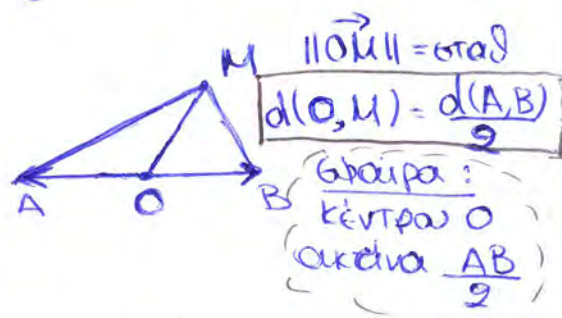 M
||OM→|| = σταθ
d(O,M) = d(A,B)/2
A O B
Σφαίρα :
κέντρου O
ακτίνα AB/2